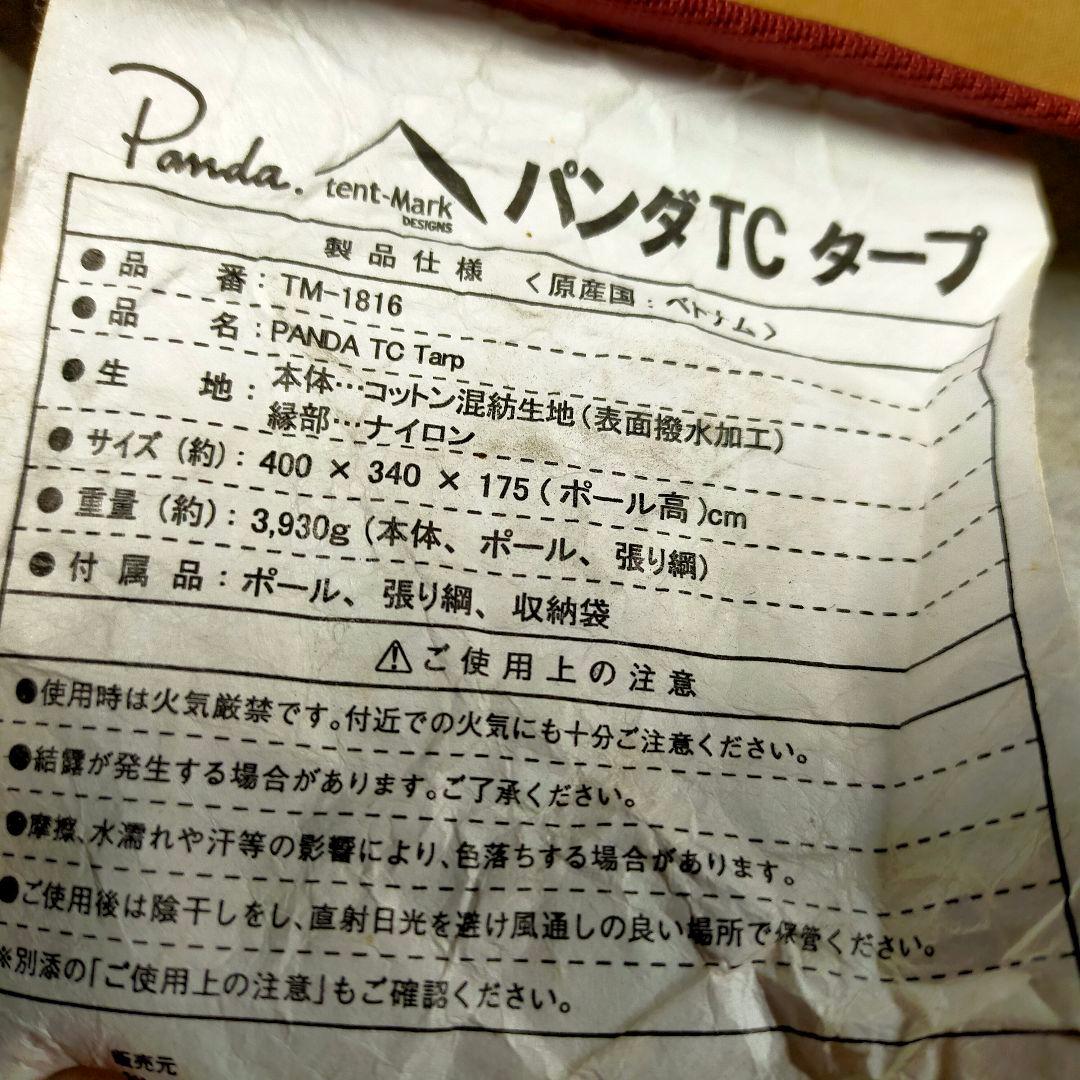 Panda.
tent-Mark
DESIGNS
パンダTC タープ
製品仕様 〈原産国：ベトナム〉
●品番：TM-1816
●品名：PANDA TC Tarp
●生地：本体…コットン混紡生地(表面撥水加工)
縁部…ナイロン
●サイズ(約)：400 × 340 × 175(ポール高)cm
●重量(約)：3,930g(本体、ポール、張り綱)
●付属品：ポール、張り綱、収納袋
⚠ご使用上の注意
●使用時は火気厳禁です。付近での火気にも十分ご注意ください。
●結露が発生する場合があります。ご了承ください。
●摩擦、水濡れや汗等の影響により、色落ちする場合があります。
●ご使用後は陰干しをし、直射日光を避け風通しの良い場所で保管ください。
※別添の「ご使用上の注意」もご確認ください。
販売元